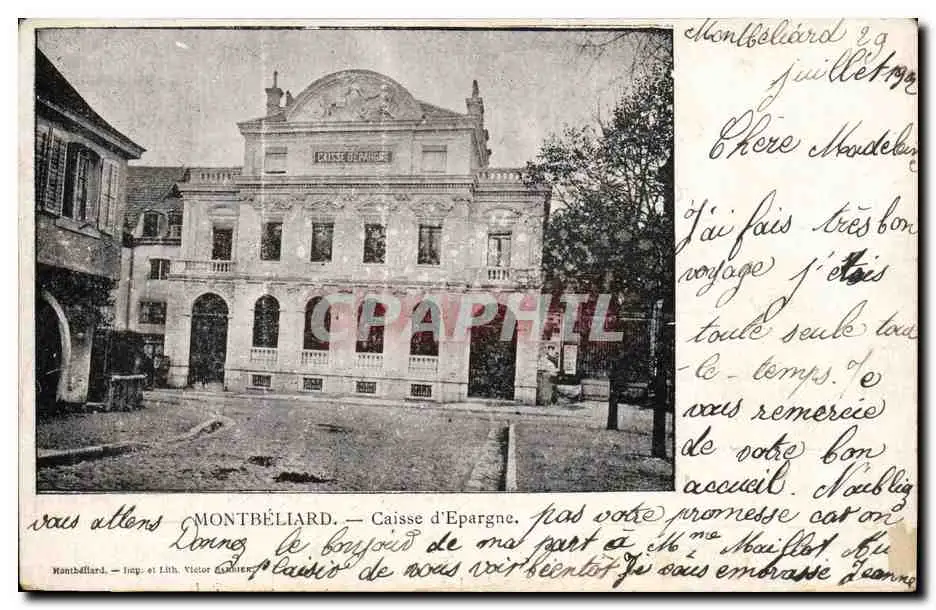 CAISSE D'EPARGNE
CARTCAPHIL
Montbéliard 29
juillet 190
Chère Madeleine
J'ai fais très bon
voyage j'étais
toute seule tous
-le-temps. Je
vous remercie
de votre bon
accueil. N'oublig
pas votre promesse car on
vous attens
MONTBÉLIARD. — Caisse d'Epargne.
Donnez le bonjour de ma part a Mme Maillot Au
plaisir de vous voir bientôt Je vous embrasse Jeanne
Montbéliard. — Imp. et Lith. Victor BARBIER